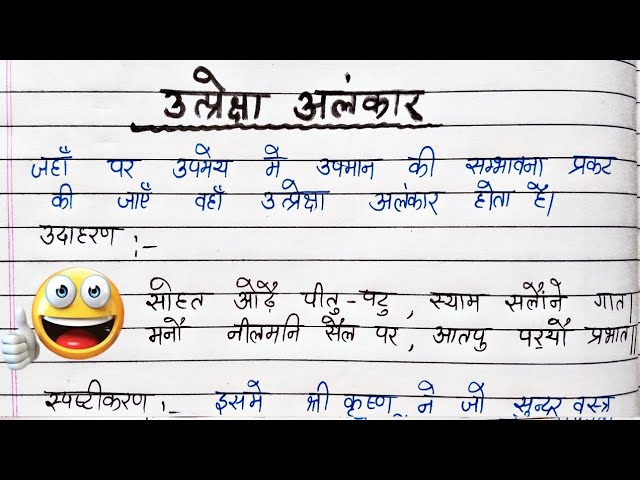 उत्प्रेक्षा अलंकार
जहाँ पर उपमेय में उपमान की सम्भावना प्रकट
की जाएँ वहाँ उत्प्रेक्षा अलंकार होता है।
उदाहरण :-
सोहत ओढ़ैं पीतु-पटु, स्याम सलौंने गात
मनौं नीलमनि सैल पर, आतपु पर्‌यौ प्रभात॥
स्पष्टीकरण :- इसमे श्री कृष्ण ने जो सुन्दर वस्त्र